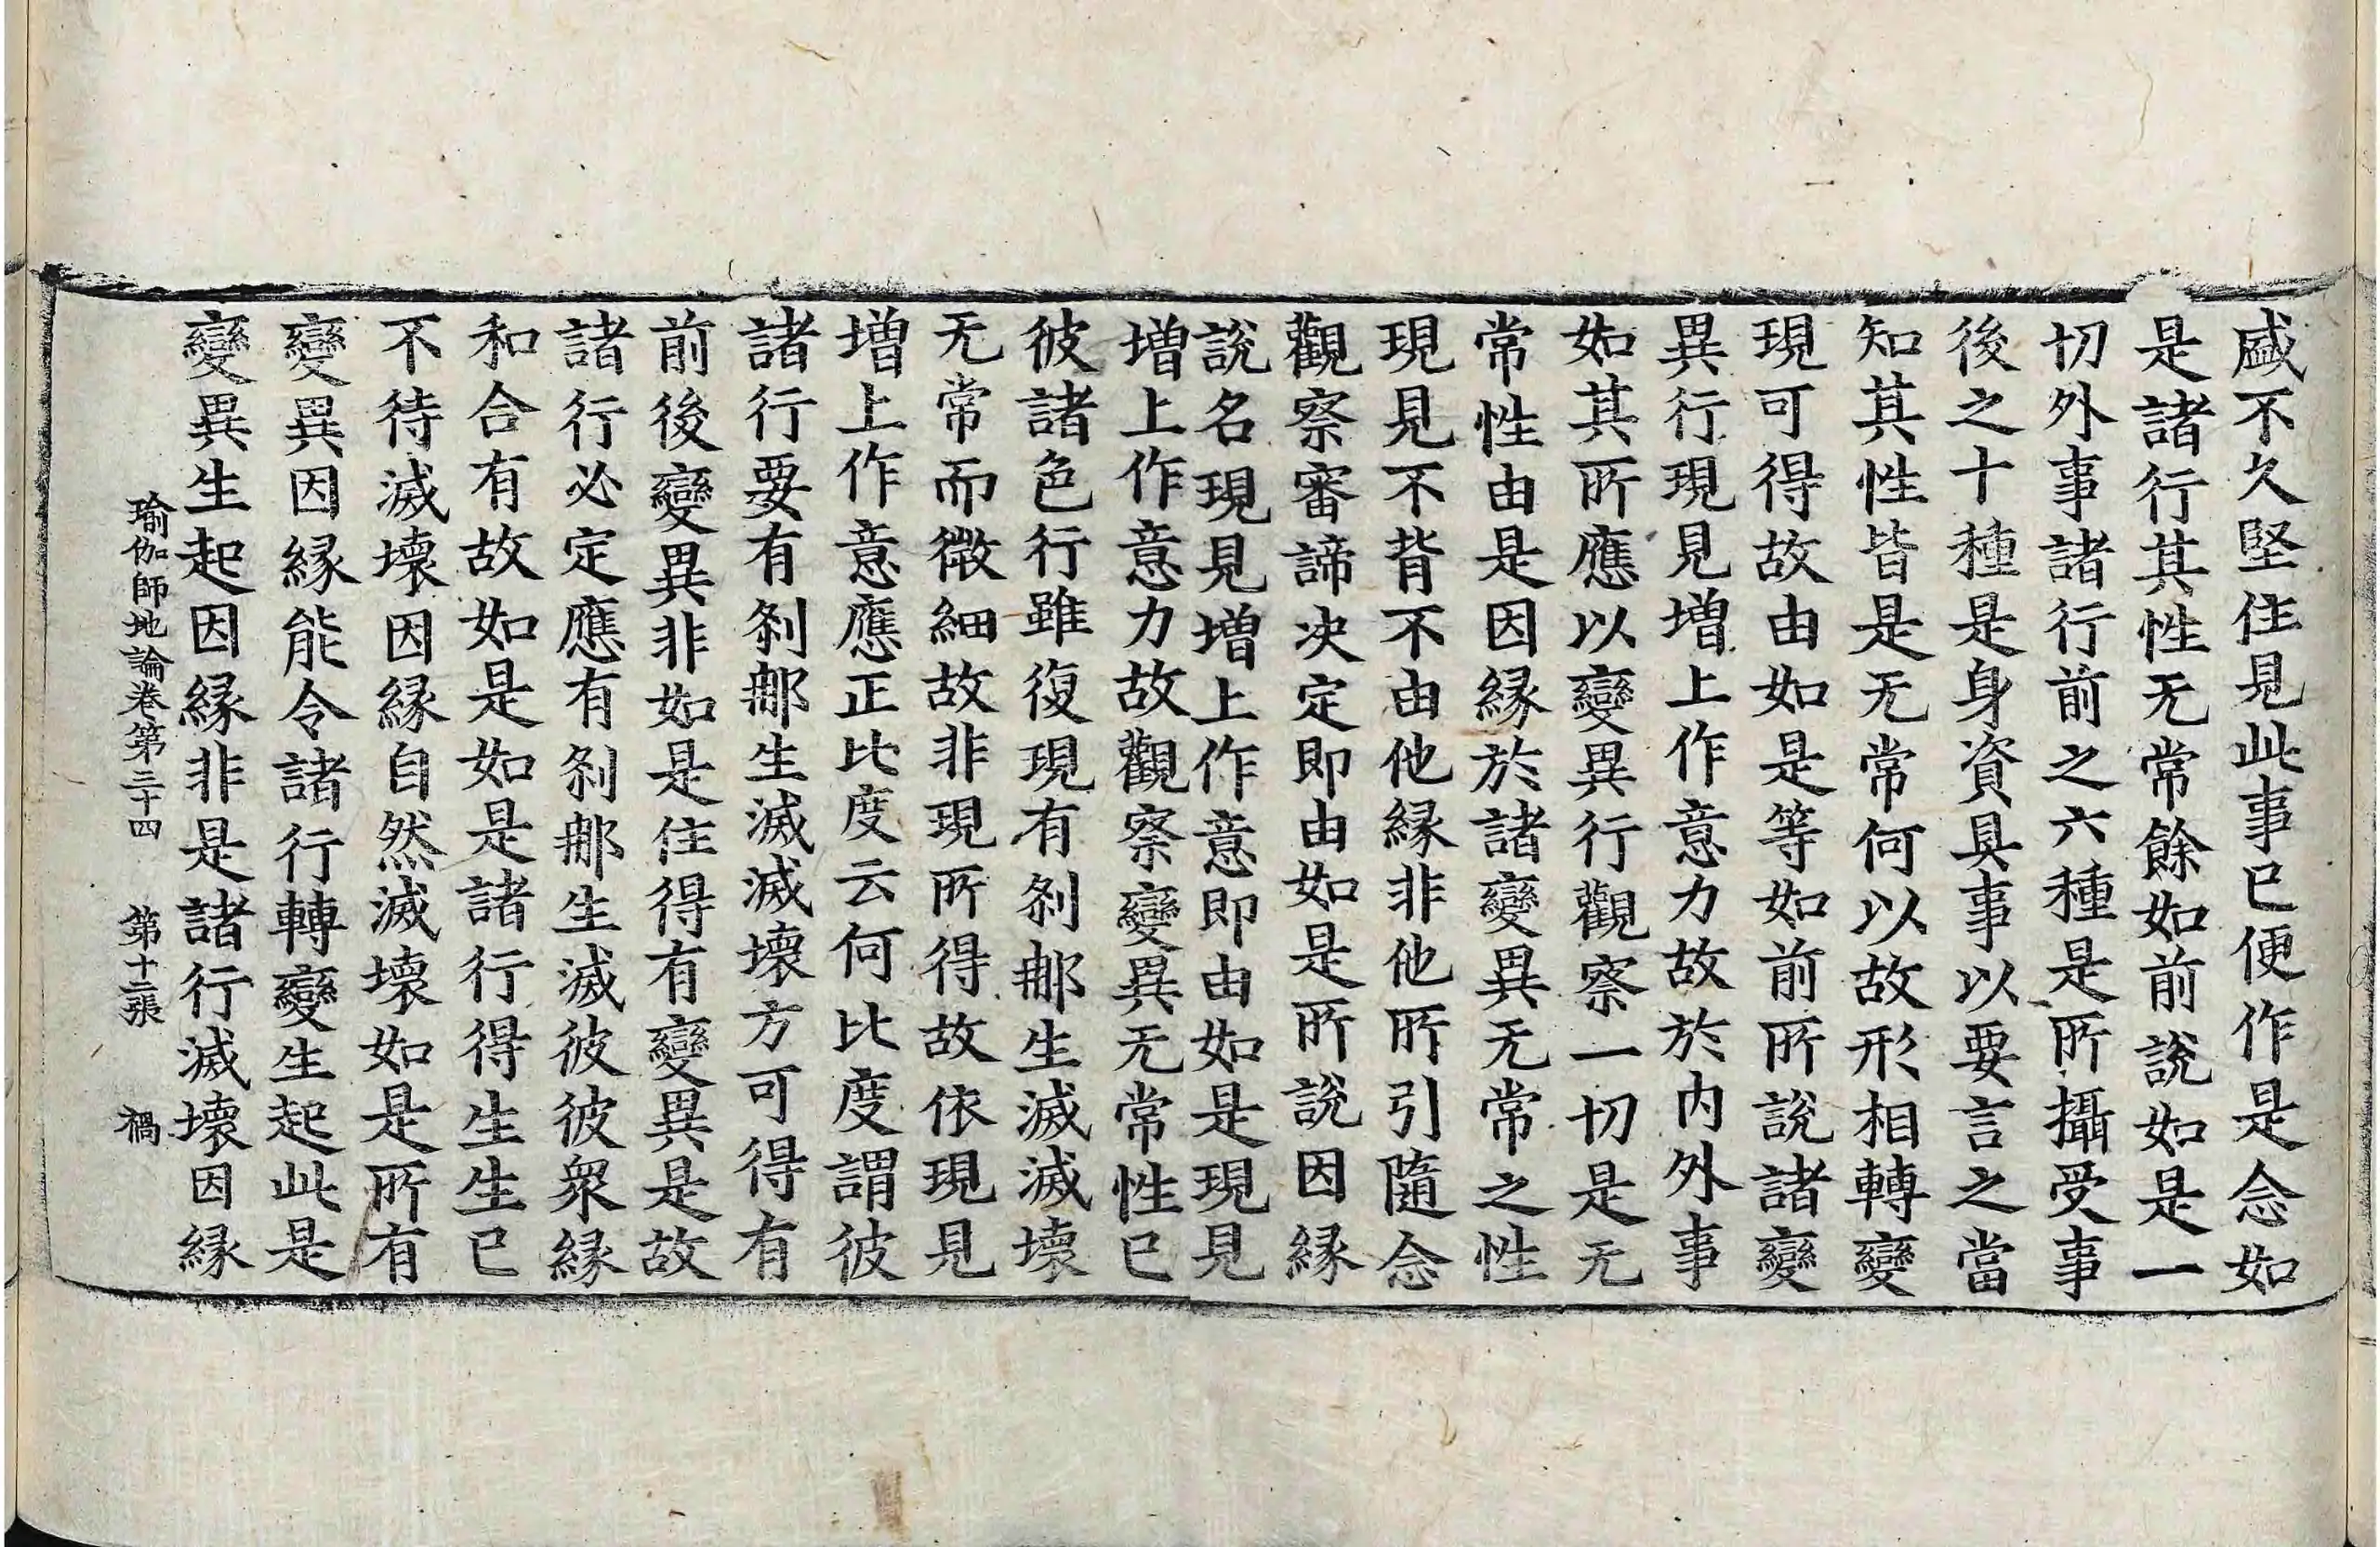 盛不久堅住見此事已便作是念如
是諸行其性无常餘如前說如是一
切外事諸行前之六種是所攝受事
後之十種是身資具事以要言之當
知其性皆是无常何以故形相轉變
現可得故由如是等如前所說諸變
異行現見增上作意力故於內外事
如其所應以變異行觀察一切是无
常性由是因緣於諸變異无常之性
現見不背不由他緣非他所引隨念
觀察審諦決定即由如是所說因緣
說名現見增上作意即由如是現見
增上作意力故觀察變異无常性已
彼諸色行雖復現有剎那生滅滅壞
无常而微細故非現所得故依現見
增上作意應正比度云何比度謂彼
諸行要有剎那生滅滅壞方可得有
前後變異非如是住得有變異是故
諸行必定應有剎那生滅彼彼衆緣
和合有故如是如是諸行得生生已
不待滅壞因緣自然滅壞如是所有
變異因緣能令諸行轉變生起此是
變異生起因緣非是諸行滅壞因緣
瑜伽師地論卷第三十四 第十二張 禍